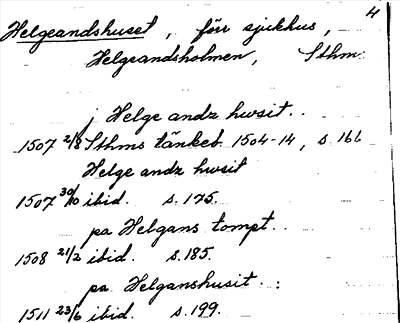 4
Helgeandshuset, förr sjukhus,
Helgeandsholmen, Sthm.
j Helge andz hwsit..
1507 2/8 Sthms tänkeb. 1504-14, s. 166
Helge andz hwsit
1507 30/10 ibid. s. 175.
pa Helgans tompt..
1508 21/2 ibid. s. 185.
pa Helganshusit..
1511 23/6 ibid. s. 199.